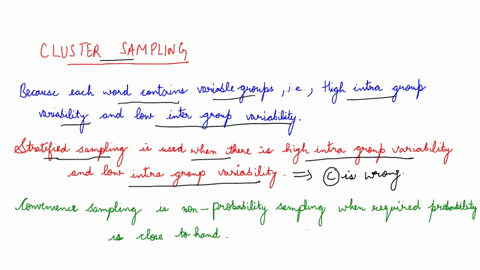 CLUSTER SAMPLING
Because each word contains variable groups, i.e., High intra group
variability and low inter group variability.
Stratified sampling is used when there is high intra group variability
and low intra group variability. ⟹ Ⓒ is wrong.
Convenience sampling is non-probability sampling when required probability
is close to hand.